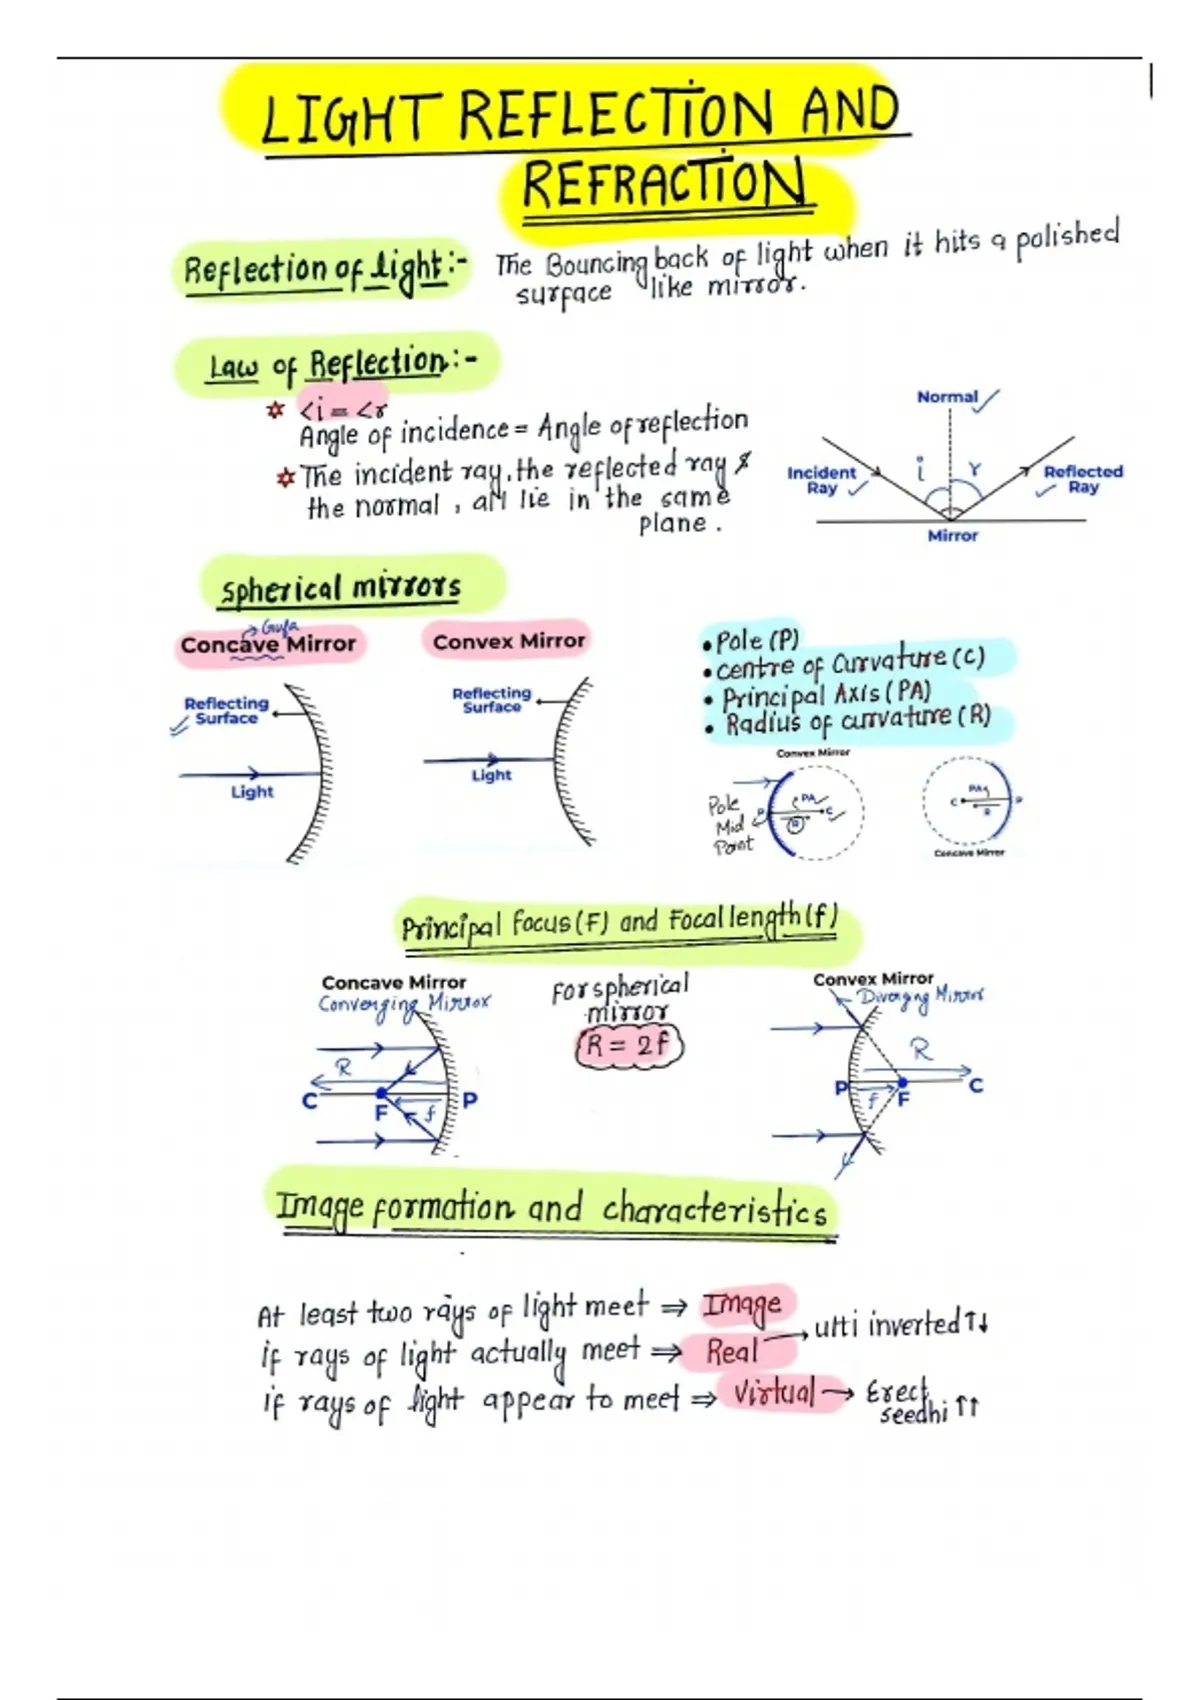 LIGHT REFLECTION AND
REFRACTION
Reflection of light:- The Bouncing back of light when it hits a polished
surface like mirror.
Law of Reflection:-
<i = <r
Angle of incidence = Angle of reflection
The incident ray, the reflected ray &
the normal, all lie in the same
plane.
Normal
Incident
Ray
i
r
Reflected
Ray
Mirror
Spherical mirrors
→ Gufa
Concave Mirror
Convex Mirror
Reflecting
Surface
Light
Reflecting
Surface
Light
• Pole (P)
• centre of Curvature (C)
• Principal Axis (PA)
• Radius of curvature (R)
Convex Mirror
Pole
Mid
Point
P
PA
C
R
PA
C
P
R
Concave Mirror
Principal Focus (F) and Focal length (f)
Concave Mirror
Converging Mirror
R
C
F
f
P
For spherical
mirror
R = 2f
Convex Mirror
Diverging Mirror
R
P
f
F
C
Image formation and characteristics
At least two rays of light meet ⇒ Image
if rays of light actually meet ⇒ Real → ulti inverted ↑↓
if rays of light appear to meet ⇒ Virtual → Erect
seedhi ↑↑